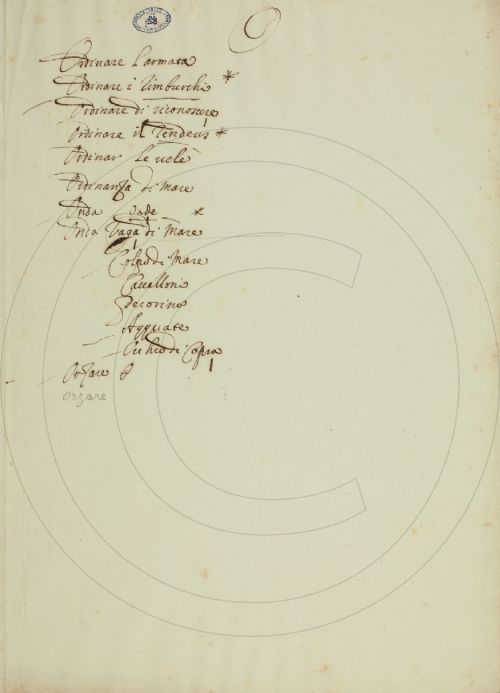 O
Ordinare l'armata
Ordinare i Rimburchi *
Ordinare di riconoscere
Ordinare il *
Ordinar le uele
Ordinanza di Mare
Onda *
Onda Vaga di Mare
Colpo di Mare
Caualloni
Pecorino
Agguate
Occhio di Capra
Orzare
orzare